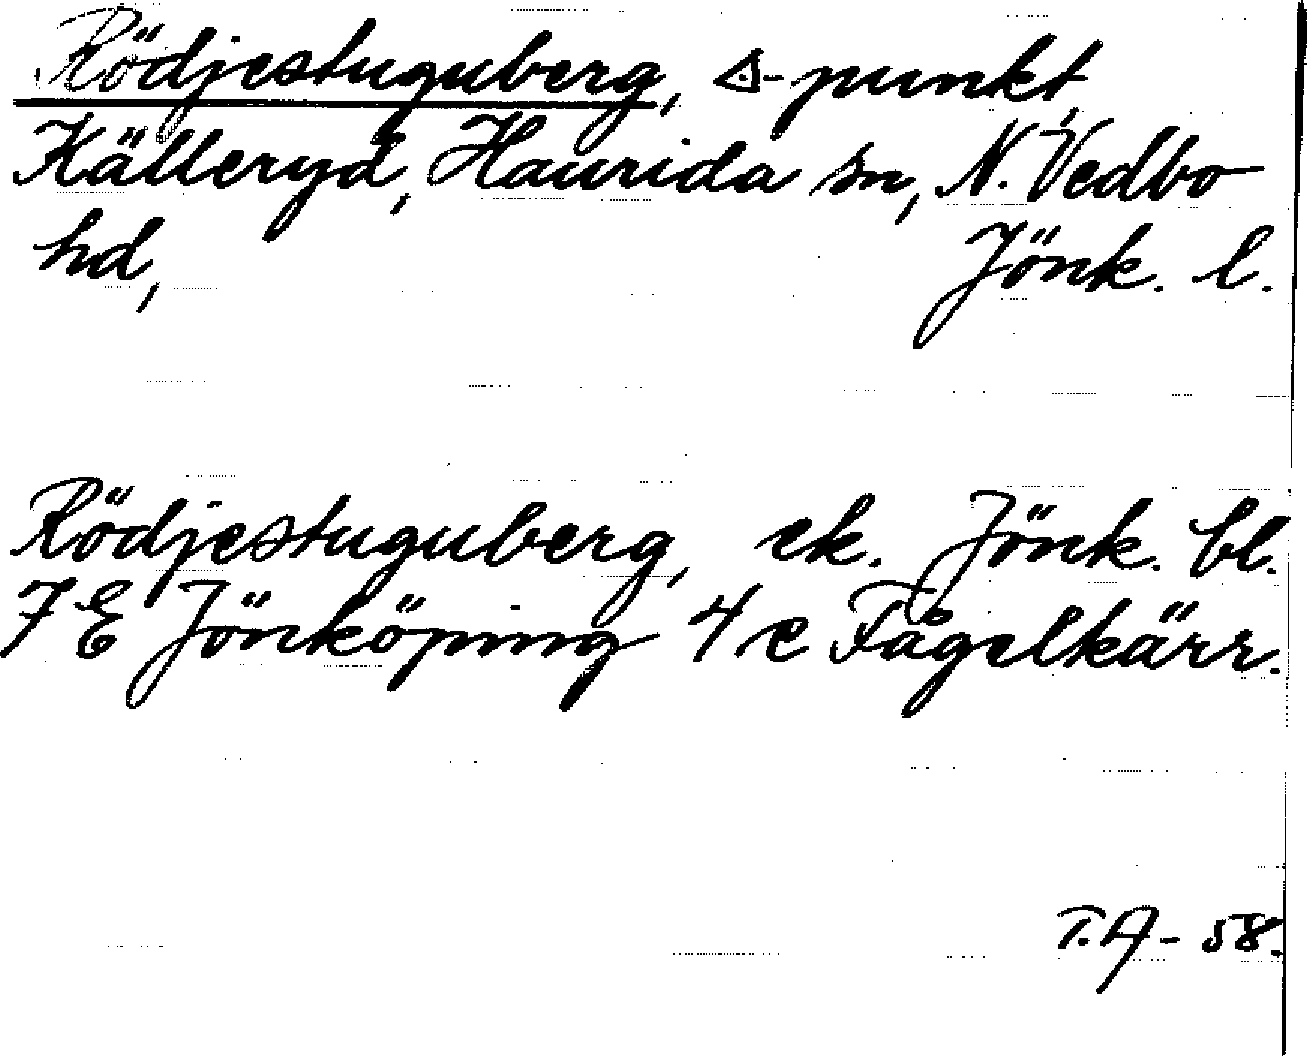 Rödjestuguberg, △-punkt,
Källeryd, Haurida sn, N. Vedbo
hd, Jönk. l.
Rödjestuguberg, ek. Jönk. bl.
7 E Jönköping 4 e Fågelkärr.
T.A - 58.